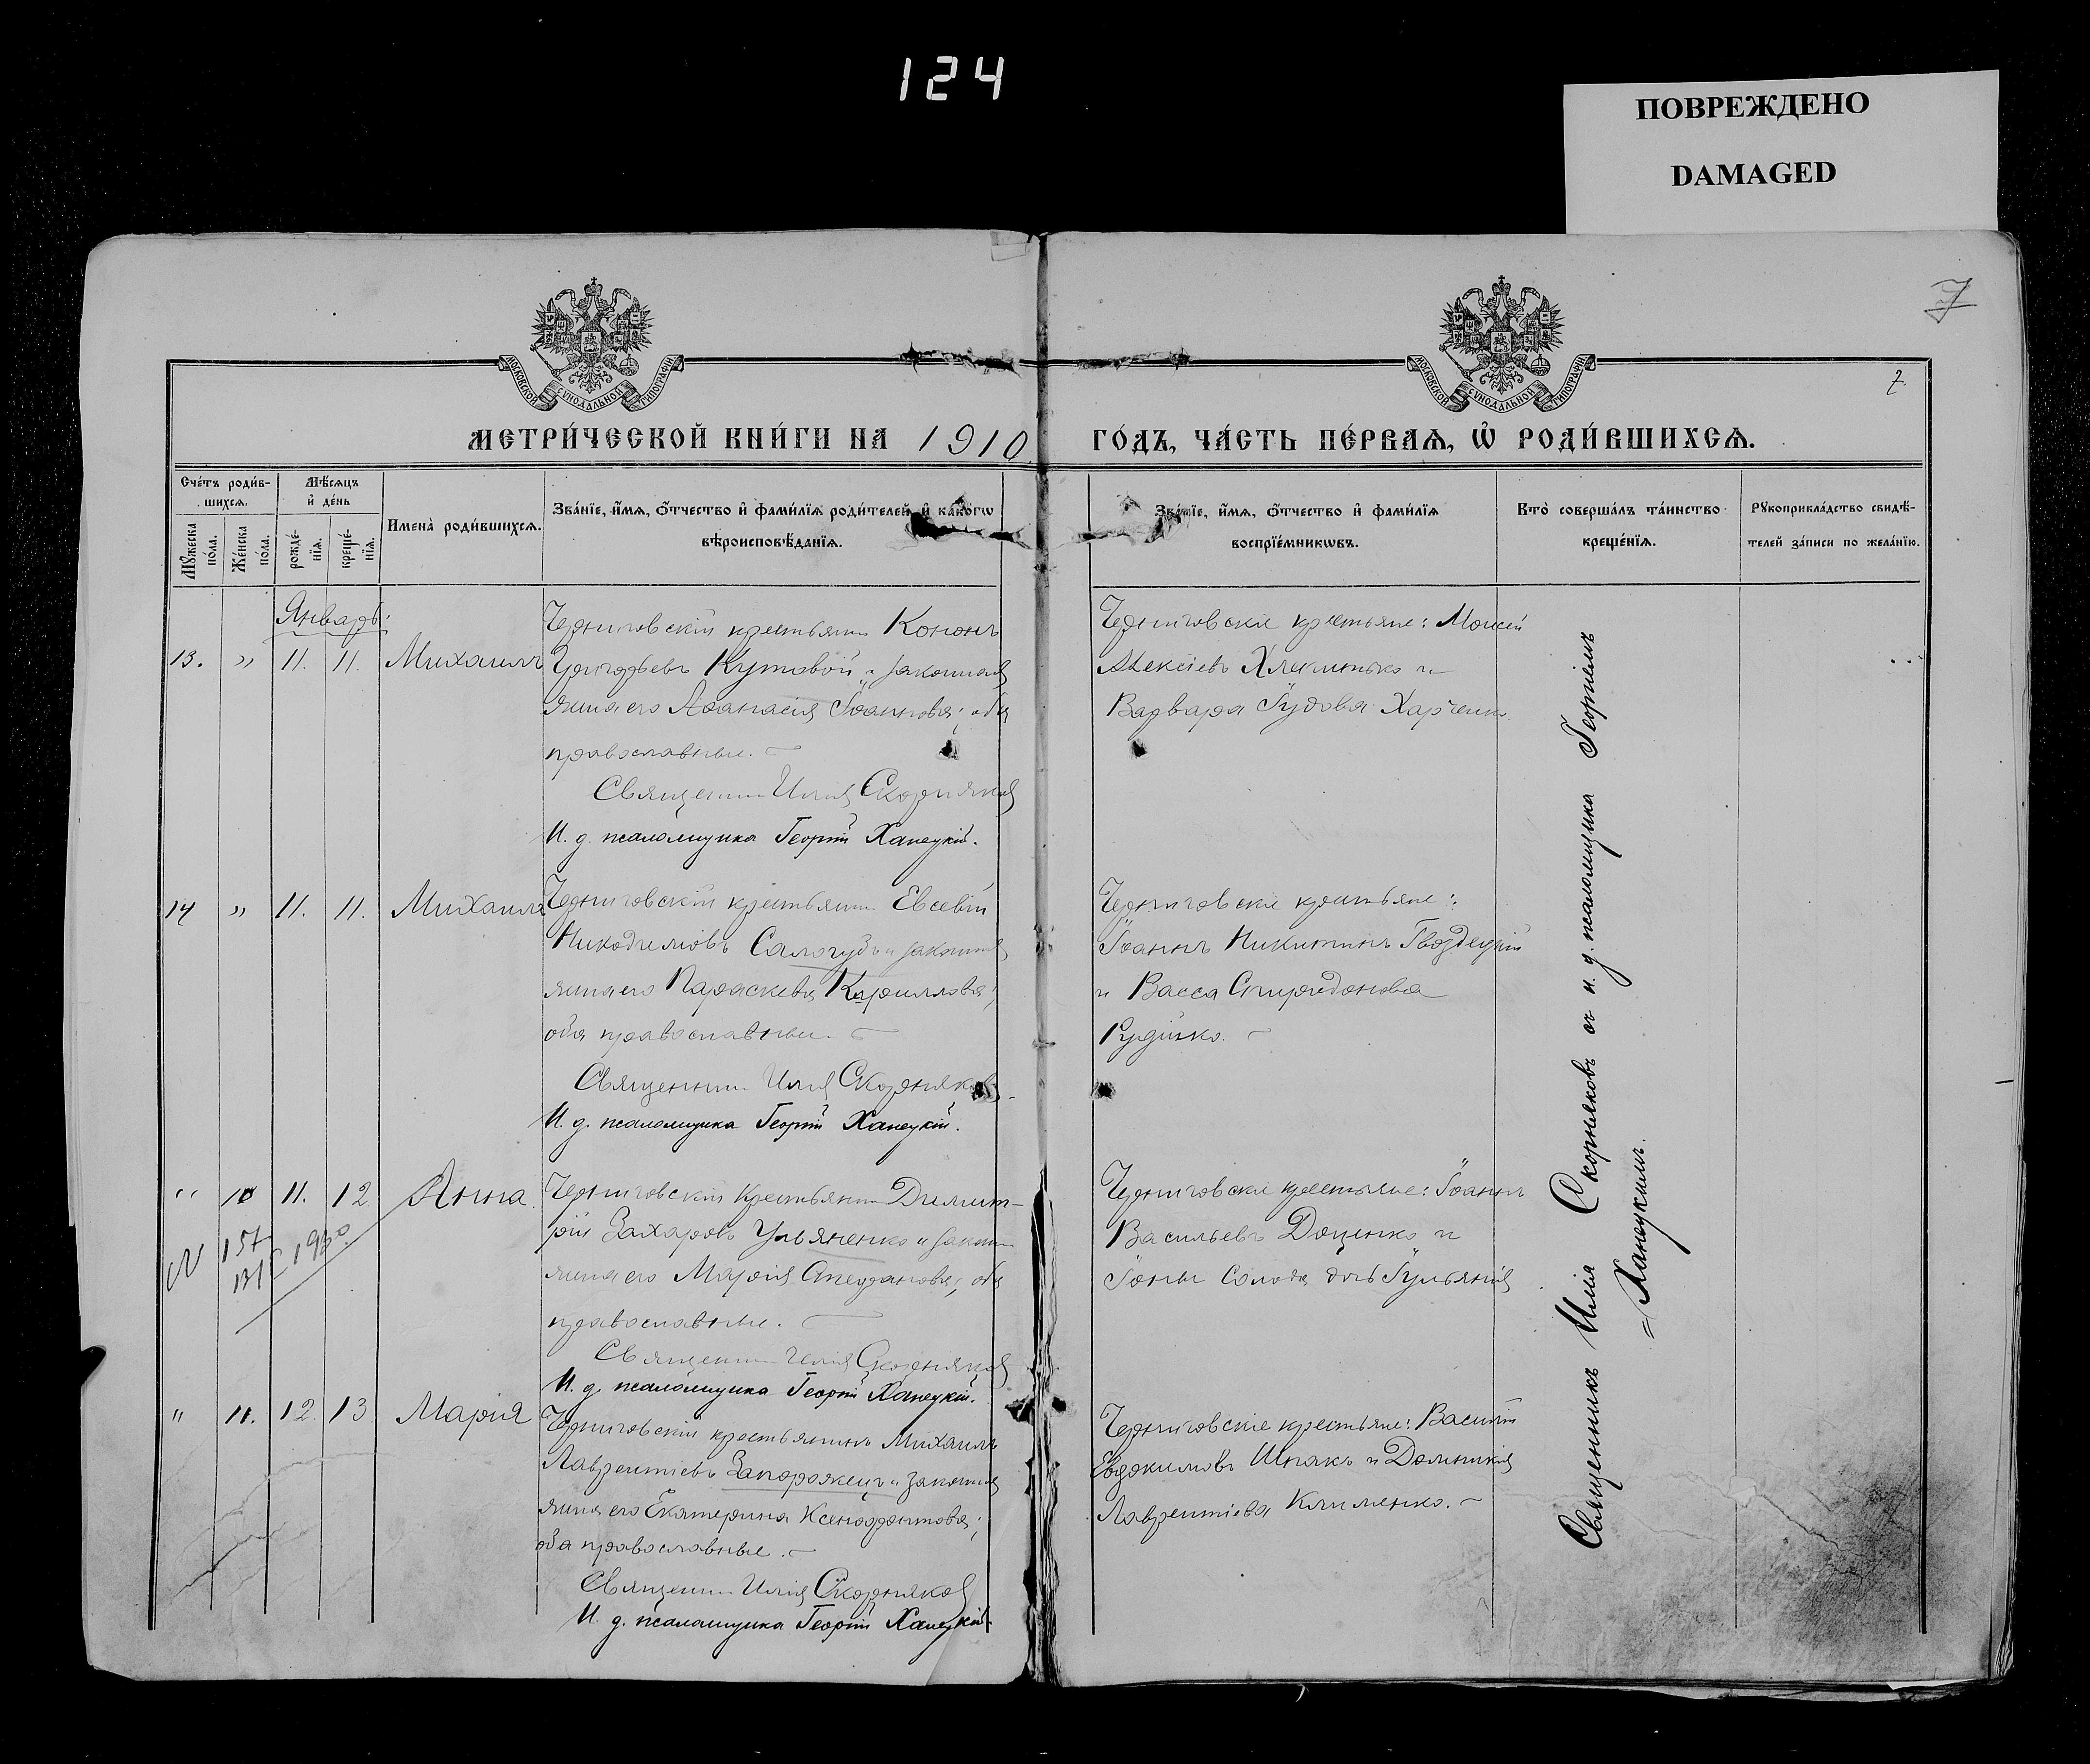 124
ПОВРЕЖДЕНО
DAMAGED
7
7.
МОСКОВСКОЙ СѴНОДАЛЬНОЙ ТИПОГРАФІИ
МОСКОВСКОЙ СѴНОДАЛЬНОЙ ТИПОГРАФІИ
МЕТРИ́ЧЕСКОЙ КНИ́ГИ НА 1910 ГО́ДЪ, ЧА́СТЬ ПЕ́РВАѦ, Ѡ҆ РОДИ́ВШИХСѦ.
Сче́тъ роди́в-
шихсѧ.
Мꙋ́жеска по́ла.
Же́нска по́ла.
Мѣ́сѧцъ
и҆ де́нь
рожде́-
нїѧ.
креще́-
нїѧ.
Имена̀ роди́вшихсѧ.
Зва́нїе, и҆́мѧ, ѻ҆́тчество и҆ фами́лїѧ роди́телей, и҆ како́гѡ
вѣроисповѣ́данїѧ.
Зва́нїе, и҆́мѧ, ѻ҆́тчество и҆ фами́лїѧ
воспрїе́мникѡвъ.
Кто̀ соверша́лъ та́инство
креще́нїѧ.
Рꙋкоприкла́дство свидѣ́-
телей за́писи по жела́нїю.
Январь.
13. " 11. 11. Михаилъ
Черниговскій крестьянин Кононъ
Кутовой и законная
жена его Афанасія Іоаннова; оба
православные.
Священник Илія Скорняков
И. д. псаломщика Георгій Ханецкій.
Черниговскіе крестьяне: Моисей
Алексіевъ и
Варвара Харченко
14 " 11. 11. Михаилъ
Черниговскій крестьянин Евсевій
Никодимовъ Салогубъ и законная
жена его Параскева Кириллова;
оба православные.
Священник Илія Скорняковъ
И. д. псаломщика Георгій Ханецкій.
Черниговскіе крестьяне:
Іоаннъ Никитинъ Гвоздецкій
и Васса Спиридонова
Рудько.
" 10 11. 12. Анна
N 157
1930
Черниговскій крестьянин Димит-
рій Захаровъ Ульяненко и закон
жена его Марія оба
православные.
Священник Илія Скорняков
И. д. псаломщика Георгій Ханецкій.
Черниговскіе крестьяне: Іоаннъ
Васильевъ Доценко и
Іоны Солода дочь Іульянія
" 11. 12. 13 Марія
Черниговскій крестьянинъ Михаилъ
Лаврентіевъ Запорожецъ и законная
жена его Екатерина Ксенофонтова;
оба православные.
Священник Илія Скорняков
И. д. псаломщика Георгій Ханецкій.
Черниговскіе крестьяне: Василій
Евдокимовъ Шпакъ и Домникія
Лаврентіева Клименко.
Священникъ Илія Скорняковъ съ и. д. псаломщика Георгіемъ
Ханецкимъ.